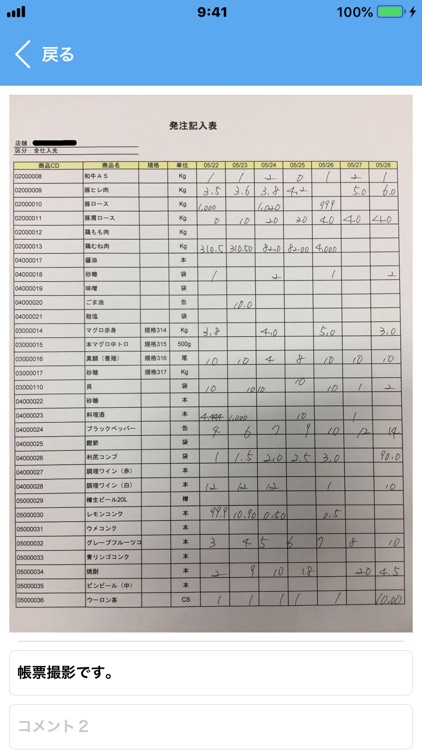 9:41
100%
戻る
発注記入表
店舗：
区分：全仕入先
商品CD 商品名 規格 単位 05/22 05/23 05/24 05/25 05/26 05/27 05/28
02000008 和牛Ａ５ Kg 1 1 2 0 1 2 1
02000009 豚ヒレ肉 Kg 3.5 3.6 3.8 4.2 5.0 6.0
02000010 豚ロース Kg 1,000 1,020 999
02000011 豚肩ロース Kg 0 10 20 30 40 40 40
02000012 鶏もも肉 Kg
02000013 鶏むね肉 Kg 310.5 310.50 82.0 82.00 4,000
04000017 醤油 本
04000018 砂糖 袋 1 2 1 2
04000019 味噌 袋
04000020 ごま油 缶 10.0
04000021 粗塩 袋
03000014 マグロ赤身 規格314 Kg 3.8 4.0 5.0 3.0
03000015 本マグロ中トロ 規格315 500g
03000016 真鯛（養殖） 規格316 尾 10 10 4 8 10 10 10
03000017 砂糖 規格317 Kg
03000110 貝 袋 10 1010 10 10 1 2
04000022 砂糖 本
04000023 料理酒 本 4,444 1,000 10 1
04000024 ブラックペッパー 缶 4 6 7 9 10 12 14
04000025 鰹節 袋
04000026 利尻コンブ 袋 1 1.5 2.0 2.5 3.0 90.0
04000027 調理ワイン（赤） 本
04000028 調理ワイン（白） 本 12 12 12 1 10
05000029 樽生ビール20L 樽
05000030 レモンコンク 本 99.9 10.90 0.50 0.5
05000031 ウメコンク 本
05000032 グレープフルーツコ 本 3 4 5 6 7 8 10
05000033 青リンゴコンク 本
05000034 焼酎 本 2 9 10 18 20 4.5
05000035 ビンビール（中） 本
05000036 ウーロン茶 CS 1 1 1 1 1 10.00
帳票撮影です。
コメント２